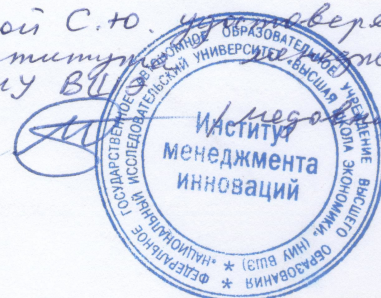 ой С.Ю. удостоверя
НИУ ВШЭ
ФЕДЕРАЛЬНОЕ ГОСУДАРСТВЕННОЕ АВТОНОМНОЕ ОБРАЗОВАТЕЛЬНОЕ УЧРЕЖДЕНИЕ ВЫСШЕГО ОБРАЗОВАНИЯ
«НАЦИОНАЛЬНЫЙ ИССЛЕДОВАТЕЛЬСКИЙ УНИВЕРСИТЕТ «ВЫСШАЯ ШКОЛА ЭКОНОМИКИ» (НИУ ВШЭ)
Институт
менеджмента
инноваций